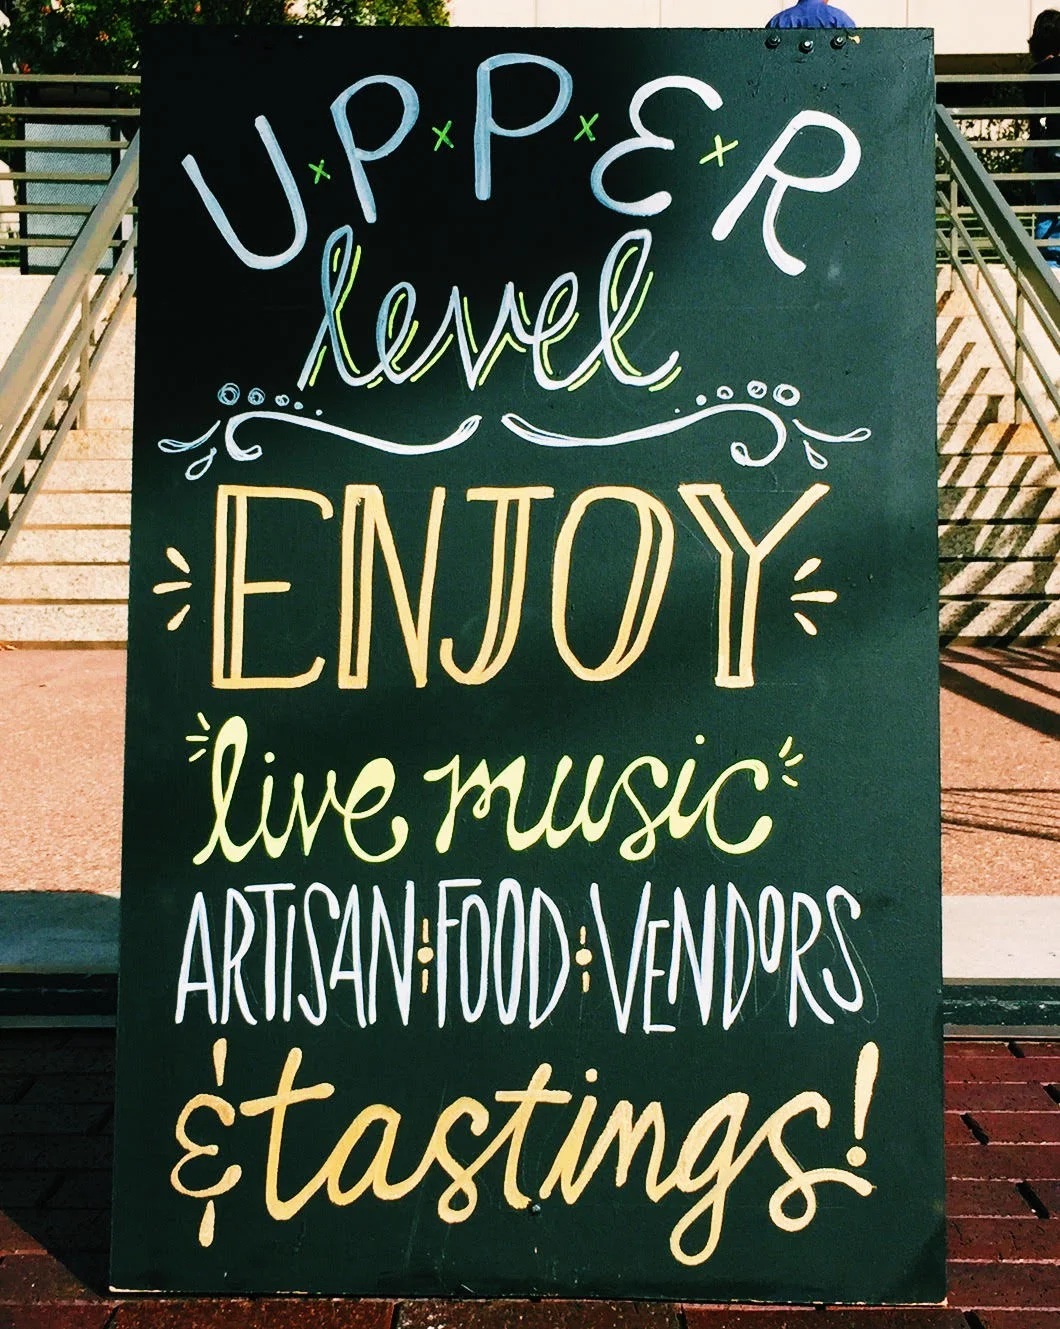 U×P×P×E×R
level
ENJOY
live music
ARTiSAN FOOD VENDORS
& tastings!